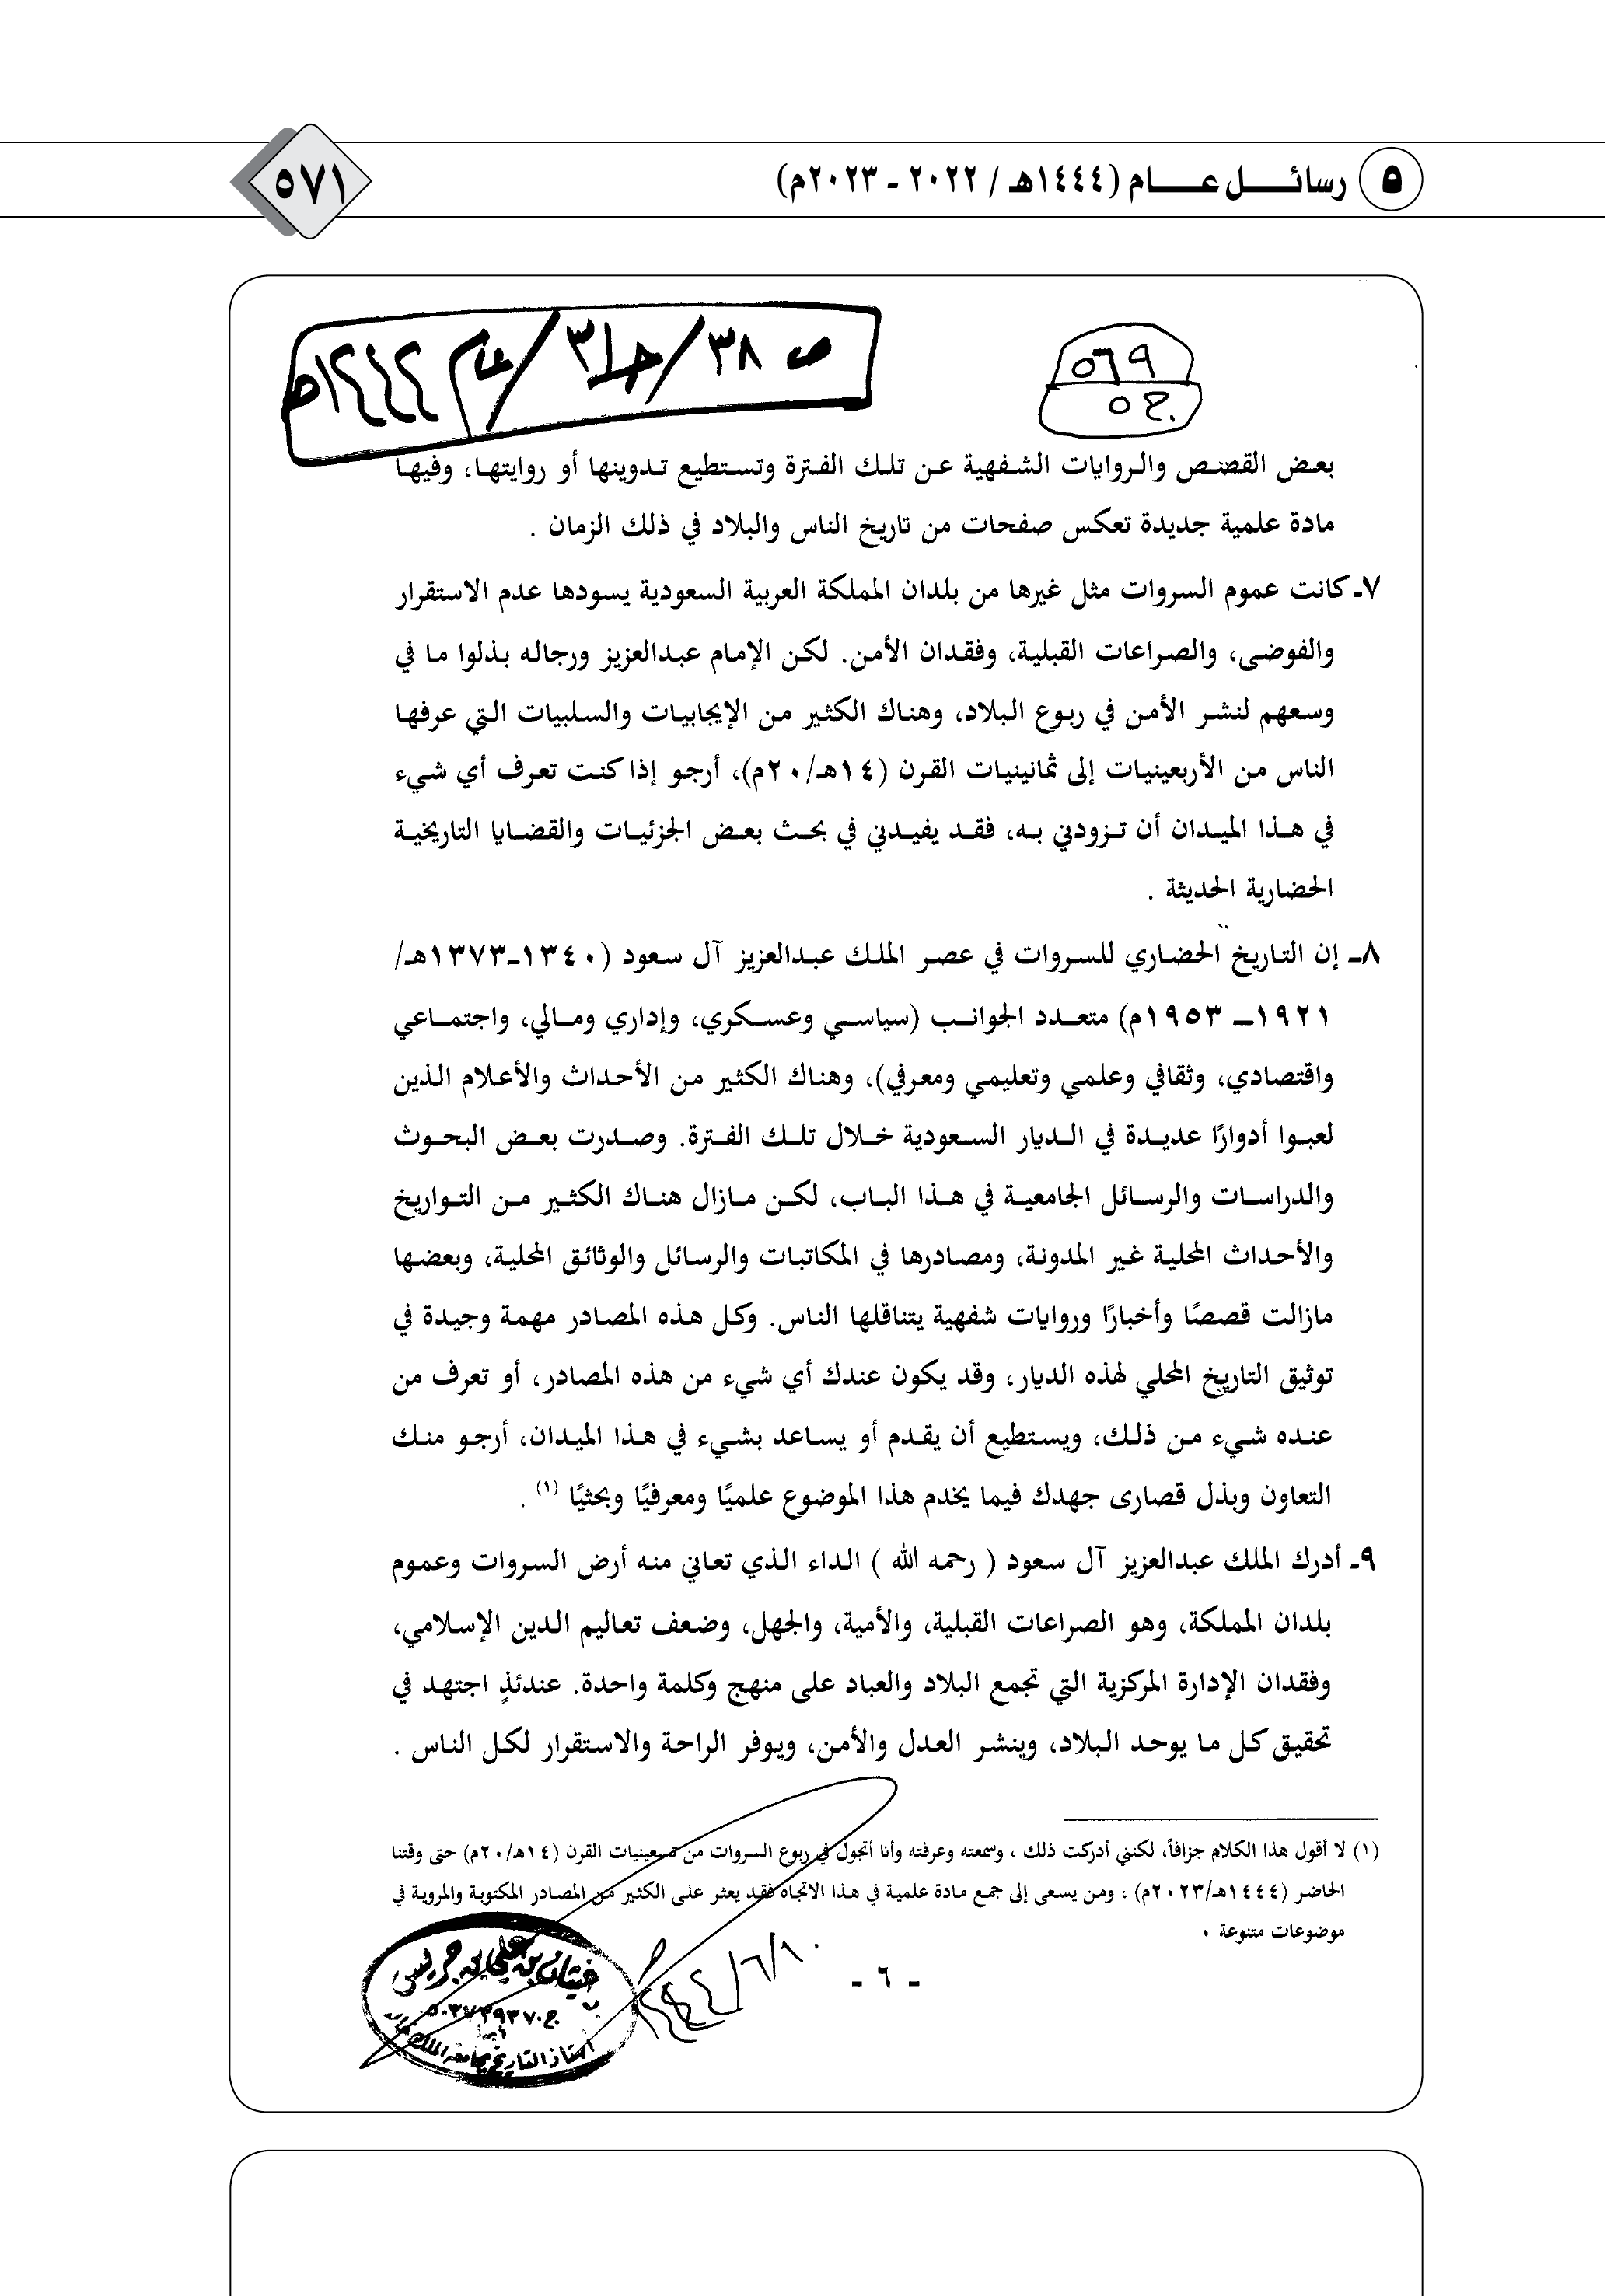 ٥ رسائل عام (١٤٤٤هـ / ٢٠٢٢ - ٢٠٢٣م)
٥٧١
ص ٣٨/ج٣١/عام ١٤٤٤هـ
٥٦٩
بعض القصص والروايات الشفهية عن تلك الفترة وتستطيع تدوينها أو روايتها، وفيها
مادة علمية جديدة تعكس صفحات من تاريخ الناس والبلاد في ذلك الزمان .
٧ـ كانت عموم السروات مثل غيرها من بلدان المملكة العربية السعودية يسودها عدم الاستقرار
والفوضى، والصراعات القبلية، وفقدان الأمن. لكن الإمام عبدالعزيز ورجاله بذلوا ما في
وسعهم لنشر الأمن في ربوع البلاد، وهناك الكثير من الإيجابيات والسلبيات التي عرفها
الناس من الأربعينيات إلى ثمانينيات القرن (١٤هـ/٢٠م)، أرجو إذا كنت تعرف أي شيء
في هذا الميدان أن تزودني به، فقد يفيدني في بحث بعض الجزئيات والقضايا التاريخية
الحضارية الحديثة .
٨ـ إن التاريخ الحضاري للسروات في عصر الملك عبدالعزيز آل سعود (١٣٤٠ـ١٣٧٣هـ/
١٩٢١ـ ١٩٥٣م) متعدد الجوانب (سياسي وعسكري، وإداري ومالي، واجتماعي
واقتصادي، وثقافي وعلمي وتعليمي ومعرفي)، وهناك الكثير من الأحداث والأعلام الذين
لعبوا أدوارًا عديدة في الديار السعودية خلال تلك الفترة. وصدرت بعض البحوث
والدراسات والرسائل الجامعية في هذا الباب، لكن مازال هناك الكثير من التواريخ
والأحداث المحلية غير المدونة، ومصادرها في المكاتبات والرسائل والوثائق المحلية، وبعضها
مازالت قصصًا وأخبارًا وروايات شفهية يتناقلها الناس. وكل هذه المصادر مهمة وجيدة في
توثيق التاريخ المحلي لهذه الديار، وقد يكون عندك أي شيء من هذه المصادر، أو تعرف من
عنده شيء من ذلك، ويستطيع أن يقدم أو يساعد بشيء في هذا الميدان، أرجو منك
التعاون وبذل قصارى جهدك فيما يخدم هذا الموضوع علميًا ومعرفيًا وبحثيًا (١) .
٩ـ أدرك الملك عبدالعزيز آل سعود ( رحمه الله ) الداء الذي تعاني منه أرض السروات وعموم
بلدان المملكة، وهو الصراعات القبلية، والأمية، والجهل، وضعف تعاليم الدين الإسلامي،
وفقدان الإدارة المركزية التي تجمع البلاد والعباد على منهج وكلمة واحدة. عندئذٍ اجتهد في
تحقيق كل ما يوحد البلاد، وينشر العدل والأمن، ويوفر الراحة والاستقرار لكل الناس .
(١) لا أقول هذا الكلام جزافاً، لكنني أدركت ذلك ، وسمعته وعرفته وأنا أتجول في ربوع السروات من تسعينيات القرن (١٤هـ/٢٠م) حتى وقتنا
الحاضر (١٤٤٤هـ/٢٠٢٣م) ، ومن يسعى إلى جمع مادة علمية في هذا الاتجاه فقد يعثر على الكثير من المصادر المكتوبة والمروية في
موضوعات متنوعة .
غيثان بن علي بن جريس
أستاذ التاريخ بجامعة الملك خالد
- ٦ -